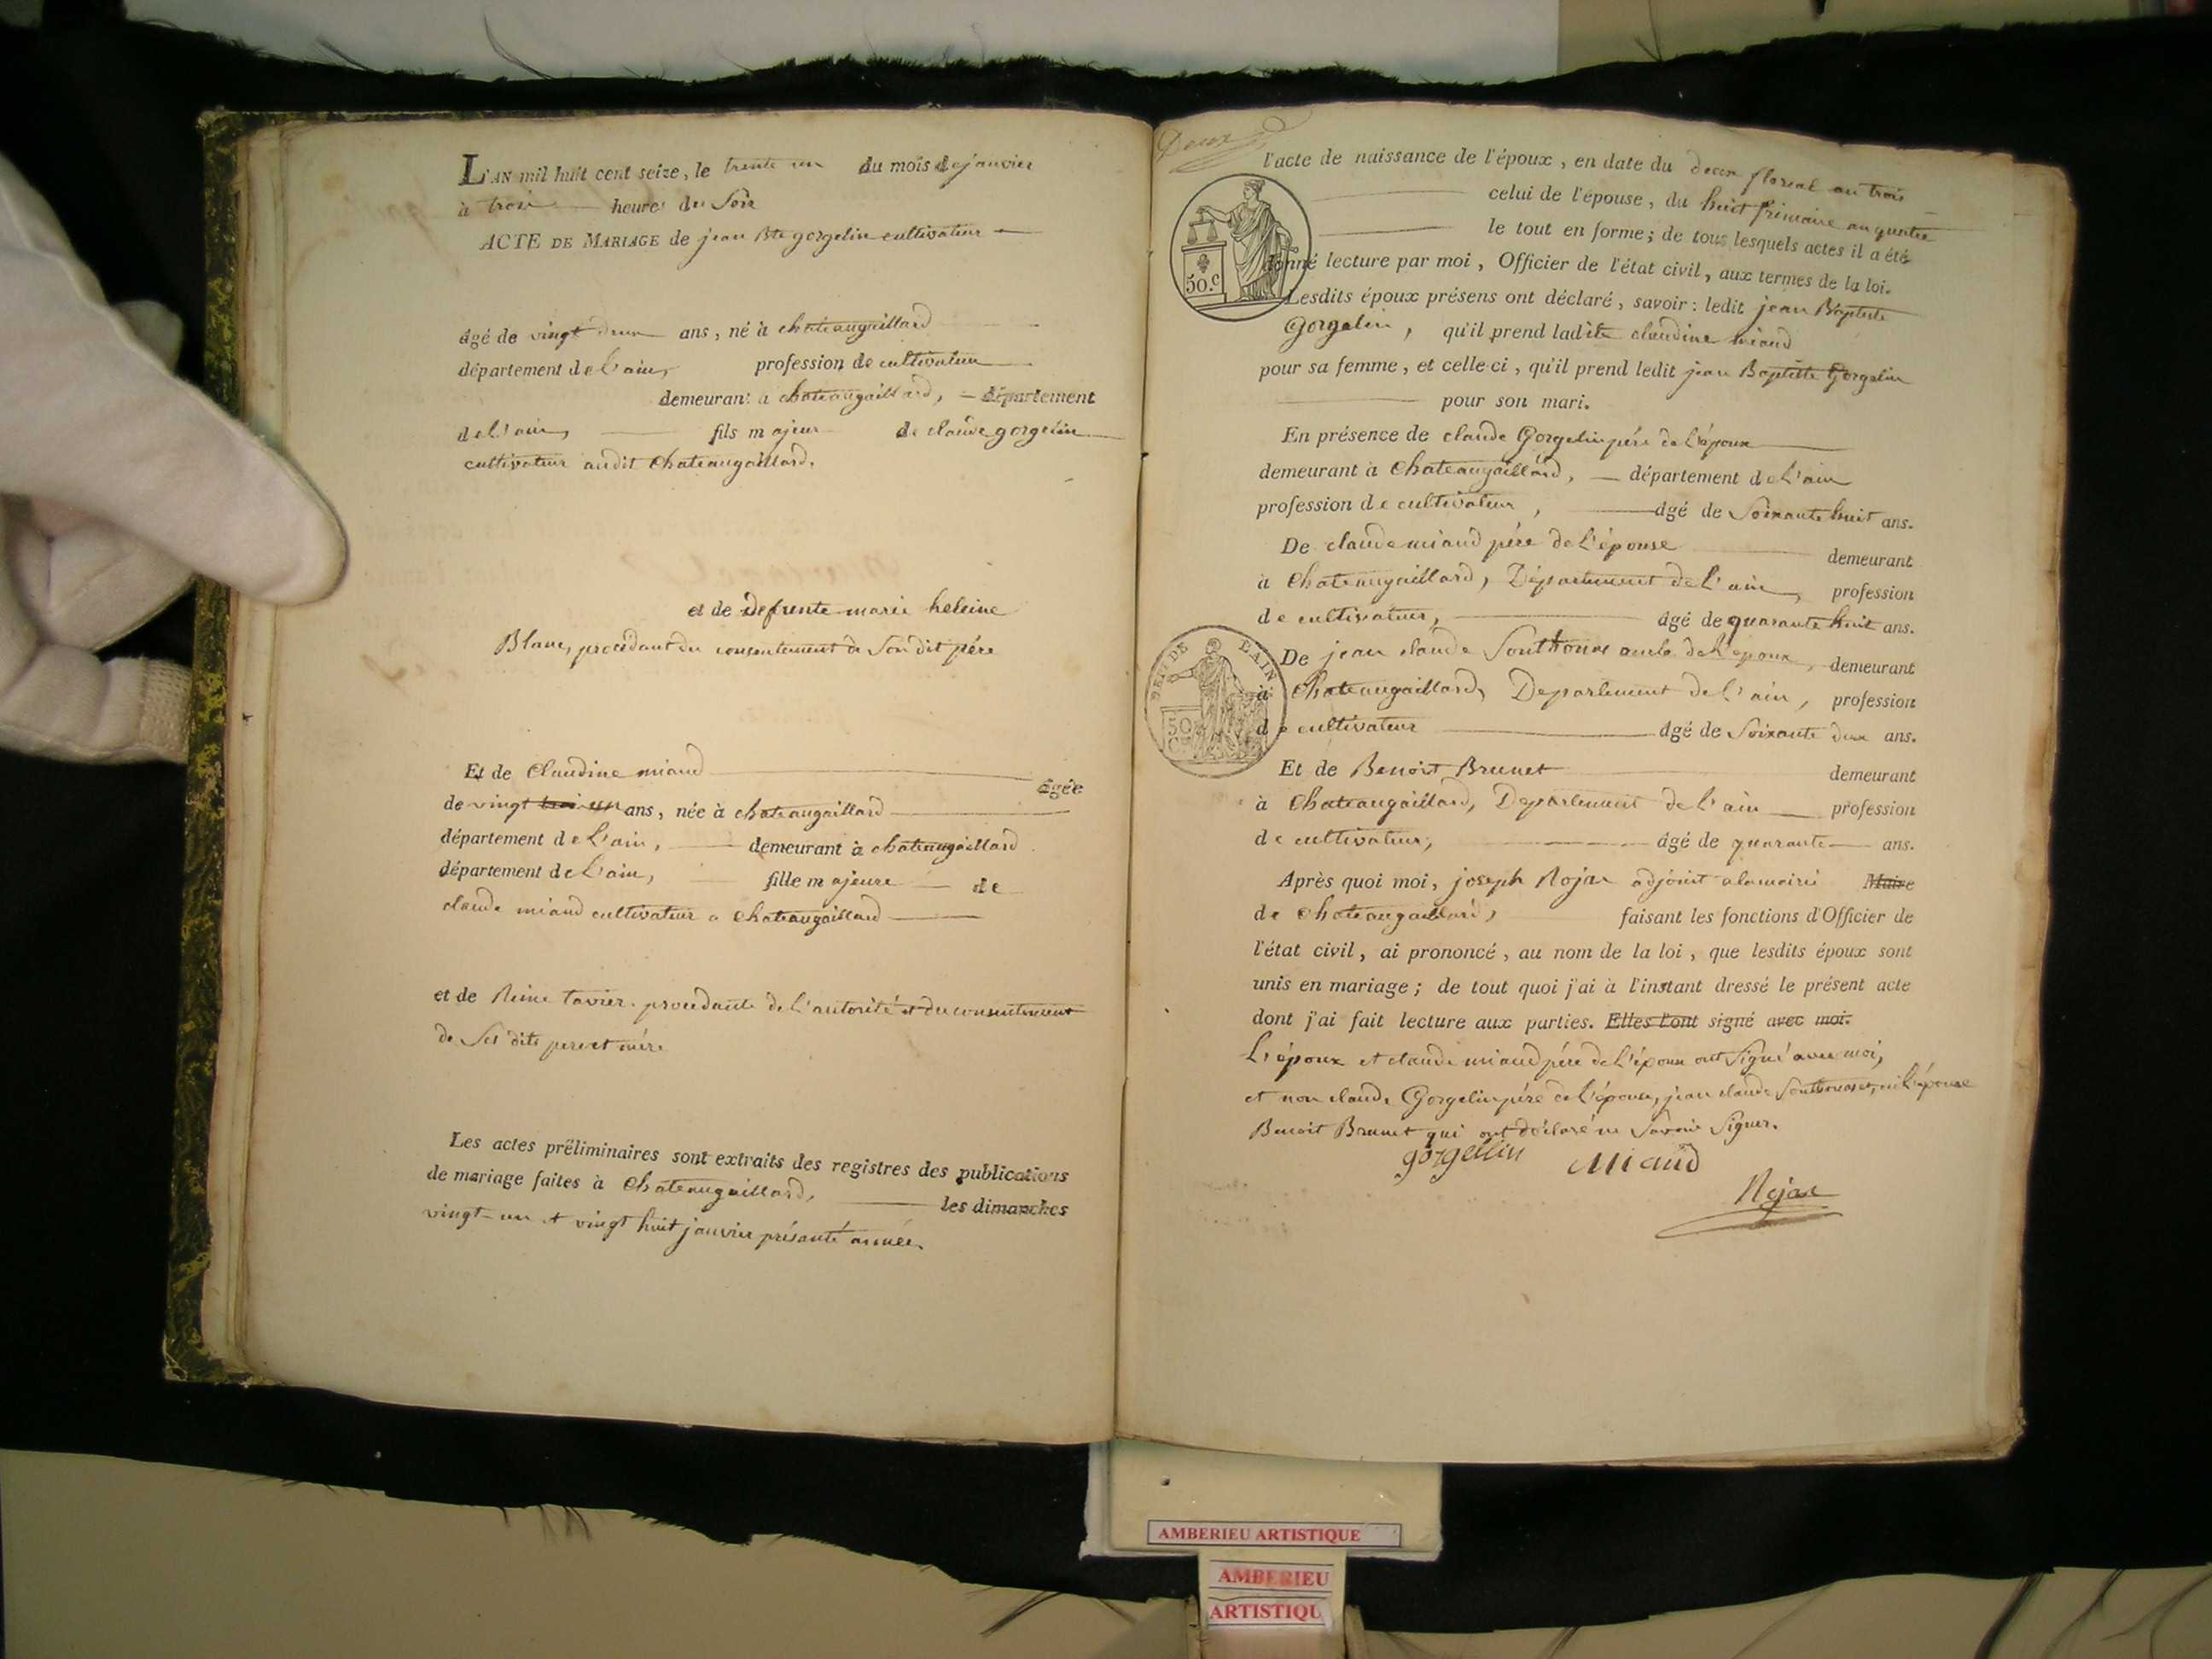 L'AN mil huit cent seize, le trente un du mois de janvier
à trois heures du Soir
ACTE DE MARIAGE de jean Bte gorgelin cultivateur
âgé de vingt deux ans, né à chateaugaillard
département de l'ain, profession de cultivateur
demeurant à chateaugaillard, département
de l'ain, fils majeur de claude gorgelin
cultivateur audit Chateaugaillard.
et de defunte marie heleine
Blanc, procédant du consentement de Son dit père
Et de Claudine miand âgée
de vingt un ans, née à chateaugaillard
département de L'ain, demeurant à chateaugaillard
département de L'ain, fille majeure de
claude miand cultivateur a Chateaugaillard
et de Reine tavier procedante de l'autorité et du consentement
de Ses dits pere et mère
Les actes préliminaires sont extraits des registres des publications
de mariage faites à Chateaugaillard, les dimanches
vingt-un et vingt huit janvier présante année.
Deux
l'acte de naissance de l'époux, en date du floreal an trois
celui de l'épouse, du huit frimaire an quatre
le tout en forme; de tous lesquels actes il a été
donné lecture par moi, Officier de l'état civil, aux termes de la loi.
50.c
Lesdits époux présens ont déclaré, savoir: ledit jean Baptiste
Gorgelin, qu'il prend ladite claudine miand
pour sa femme, et celle-ci, qu'il prend ledit jean Baptiste Gorgelin
pour son mari.
En présence de claude Gorgelin père de l'époux
demeurant à Chateaugaillard, département de L'ain
profession de cultivateur, âgé de Soixante huit ans.
De claude miand père de l'épouse demeurant
à Chateaugaillard, Département de l'ain, profession
de cultivateur, âgé de quarante huit ans.
DEPT DE L'AIN
50 C
De jean claude Sonthonax oncle de l'epoux, demeurant
à Chateaugaillard, Departement de l'ain, profession
de cultivateur âgé de Soixante deux ans.
Et de Benoit Brunet demeurant
à Chateaugaillard, Departement de l'ain profession
de cultivateur, âgé de quarante ans.
Après quoi moi, joseph Rojat adjoint a la mairie Maire
de Chateaugaillard, faisant les fonctions d'Officier de
l'état civil, ai prononcé, au nom de la loi, que lesdits époux sont
unis en mariage; de tout quoi j'ai à l'instant dressé le présent acte
dont j'ai fait lecture aux parties. Elles l'ont signé avec moi.
L'époux et claude miand père de l'époux ont Signé avec moi,
et non claude Gorgelin père de l'épouse, jean claude Sonthonax et, ni l'épouse
Benoit Brunet qui ont déclaré ne Savoir Signer.
gorgellin Miand
Rojat
AMBERIEU ARTISTIQUE
AMBERIEU
ARTISTIQU